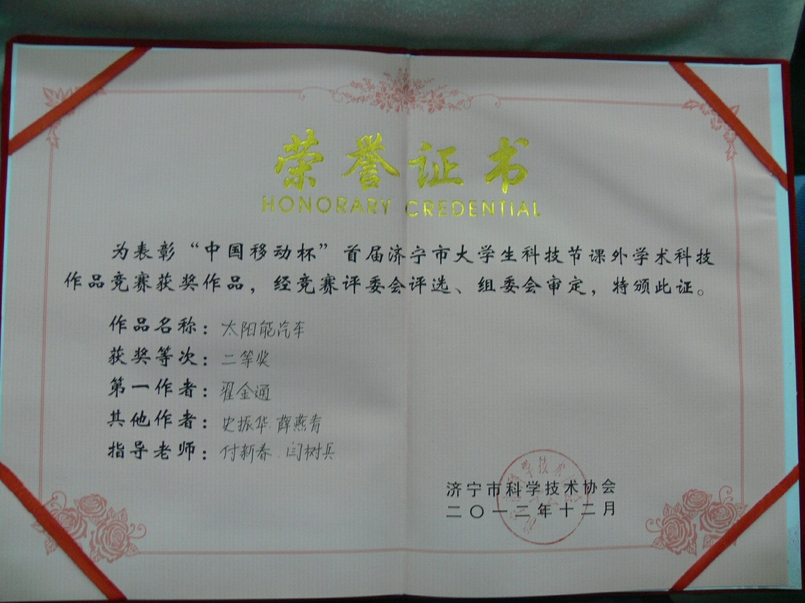 荣誉证书
HONORARY CREDENTIAL
为表彰“中国移动杯”首届济宁市大学生科技节课外学术科技
作品竞赛获奖作品，经竞赛评委会评选、组委会审定，特颁此证。
作品名称：太阳能汽车
获奖等次：二等奖
第一作者：翟金通
其他作者：史振华 薛燕青
指导老师：付新春 闫树兵
济宁市科学技术协会
二〇一二年十二月